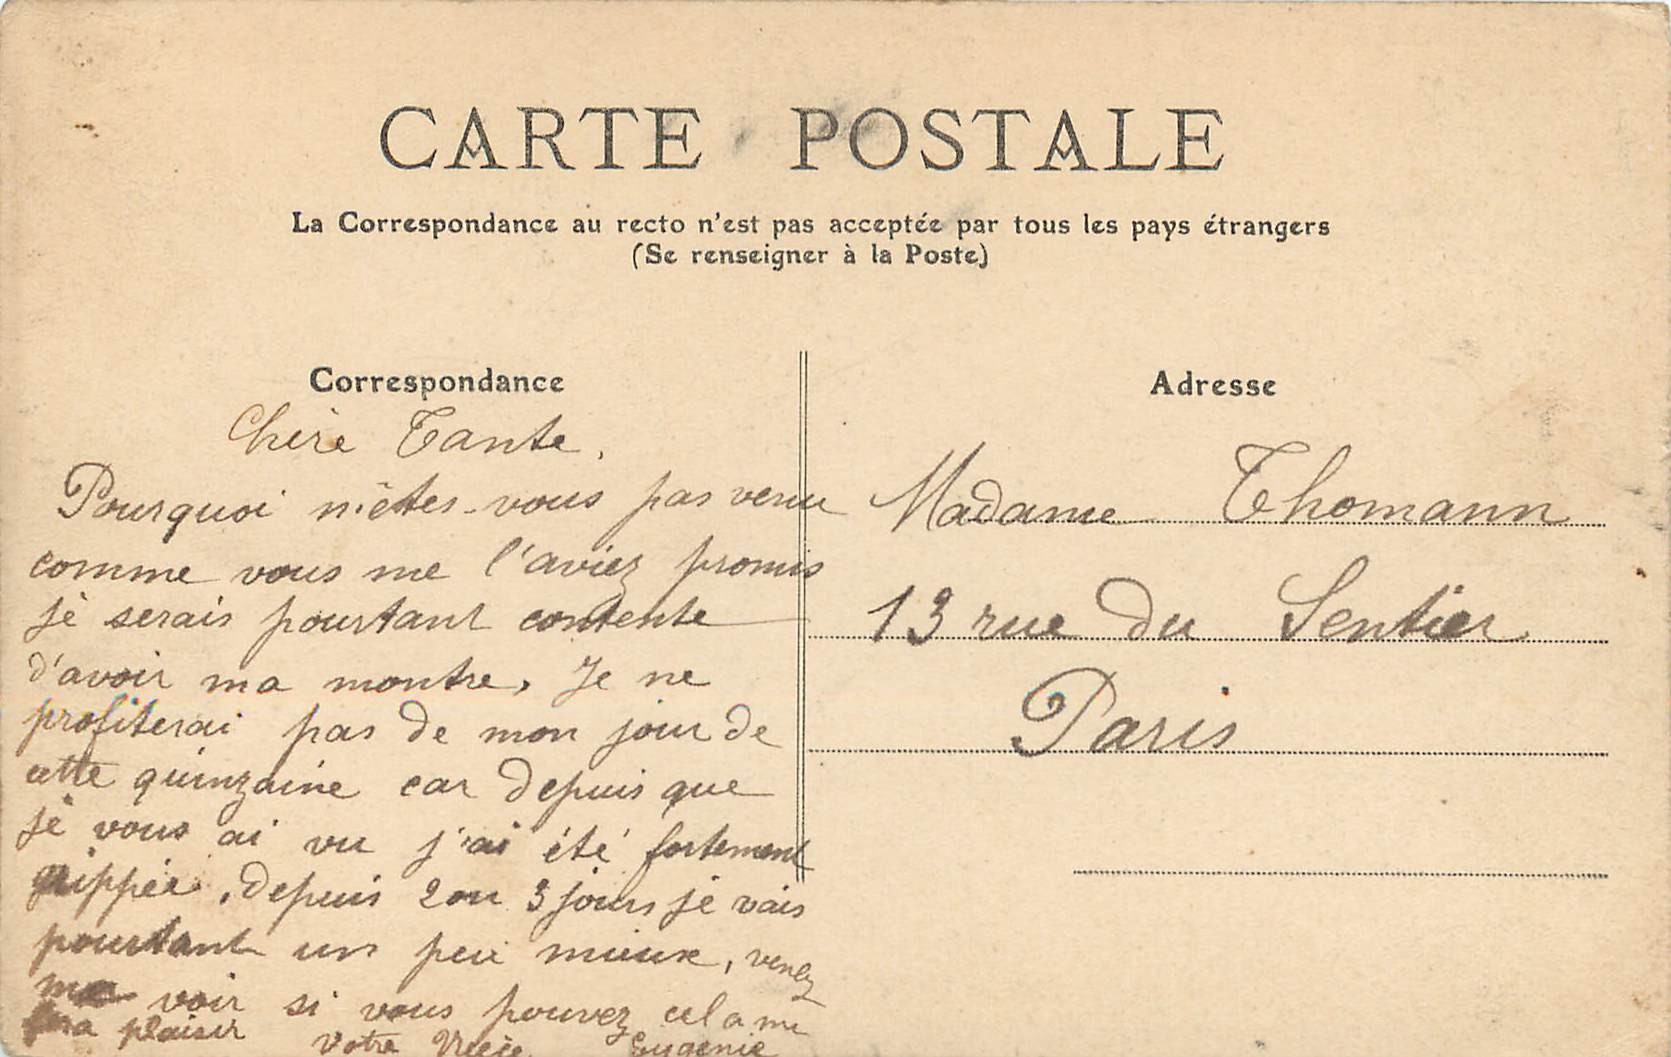 CARTE POSTALE
La Correspondance au recto n'est pas acceptée par tous les pays étrangers
(Se renseigner à la Poste)
Correspondance
Chère Tante,
Pourquoi n'êtes-vous pas venu
comme vous me l'aviez promis
je serais pourtant contente
d'avoir ma montre, Je ne
profiterai pas de mon jour de
cette quinzaine car depuis que
je vous ai vu j'ai été fortement
grippée, depuis 2 ou 3 jours je vais
pourtant un peu mieux, venez
me voir si vous pouvez cela me
fera plaisir Votre Nièce Eugénie
Adresse
Madame Thomann
13 rue du Sentier
Paris